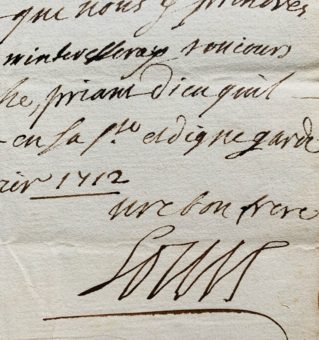 que nous y prendrés
toucours
he, priant dieu quil
en sa s.te et digne garde
rier 1712
vre bon frere
Louis